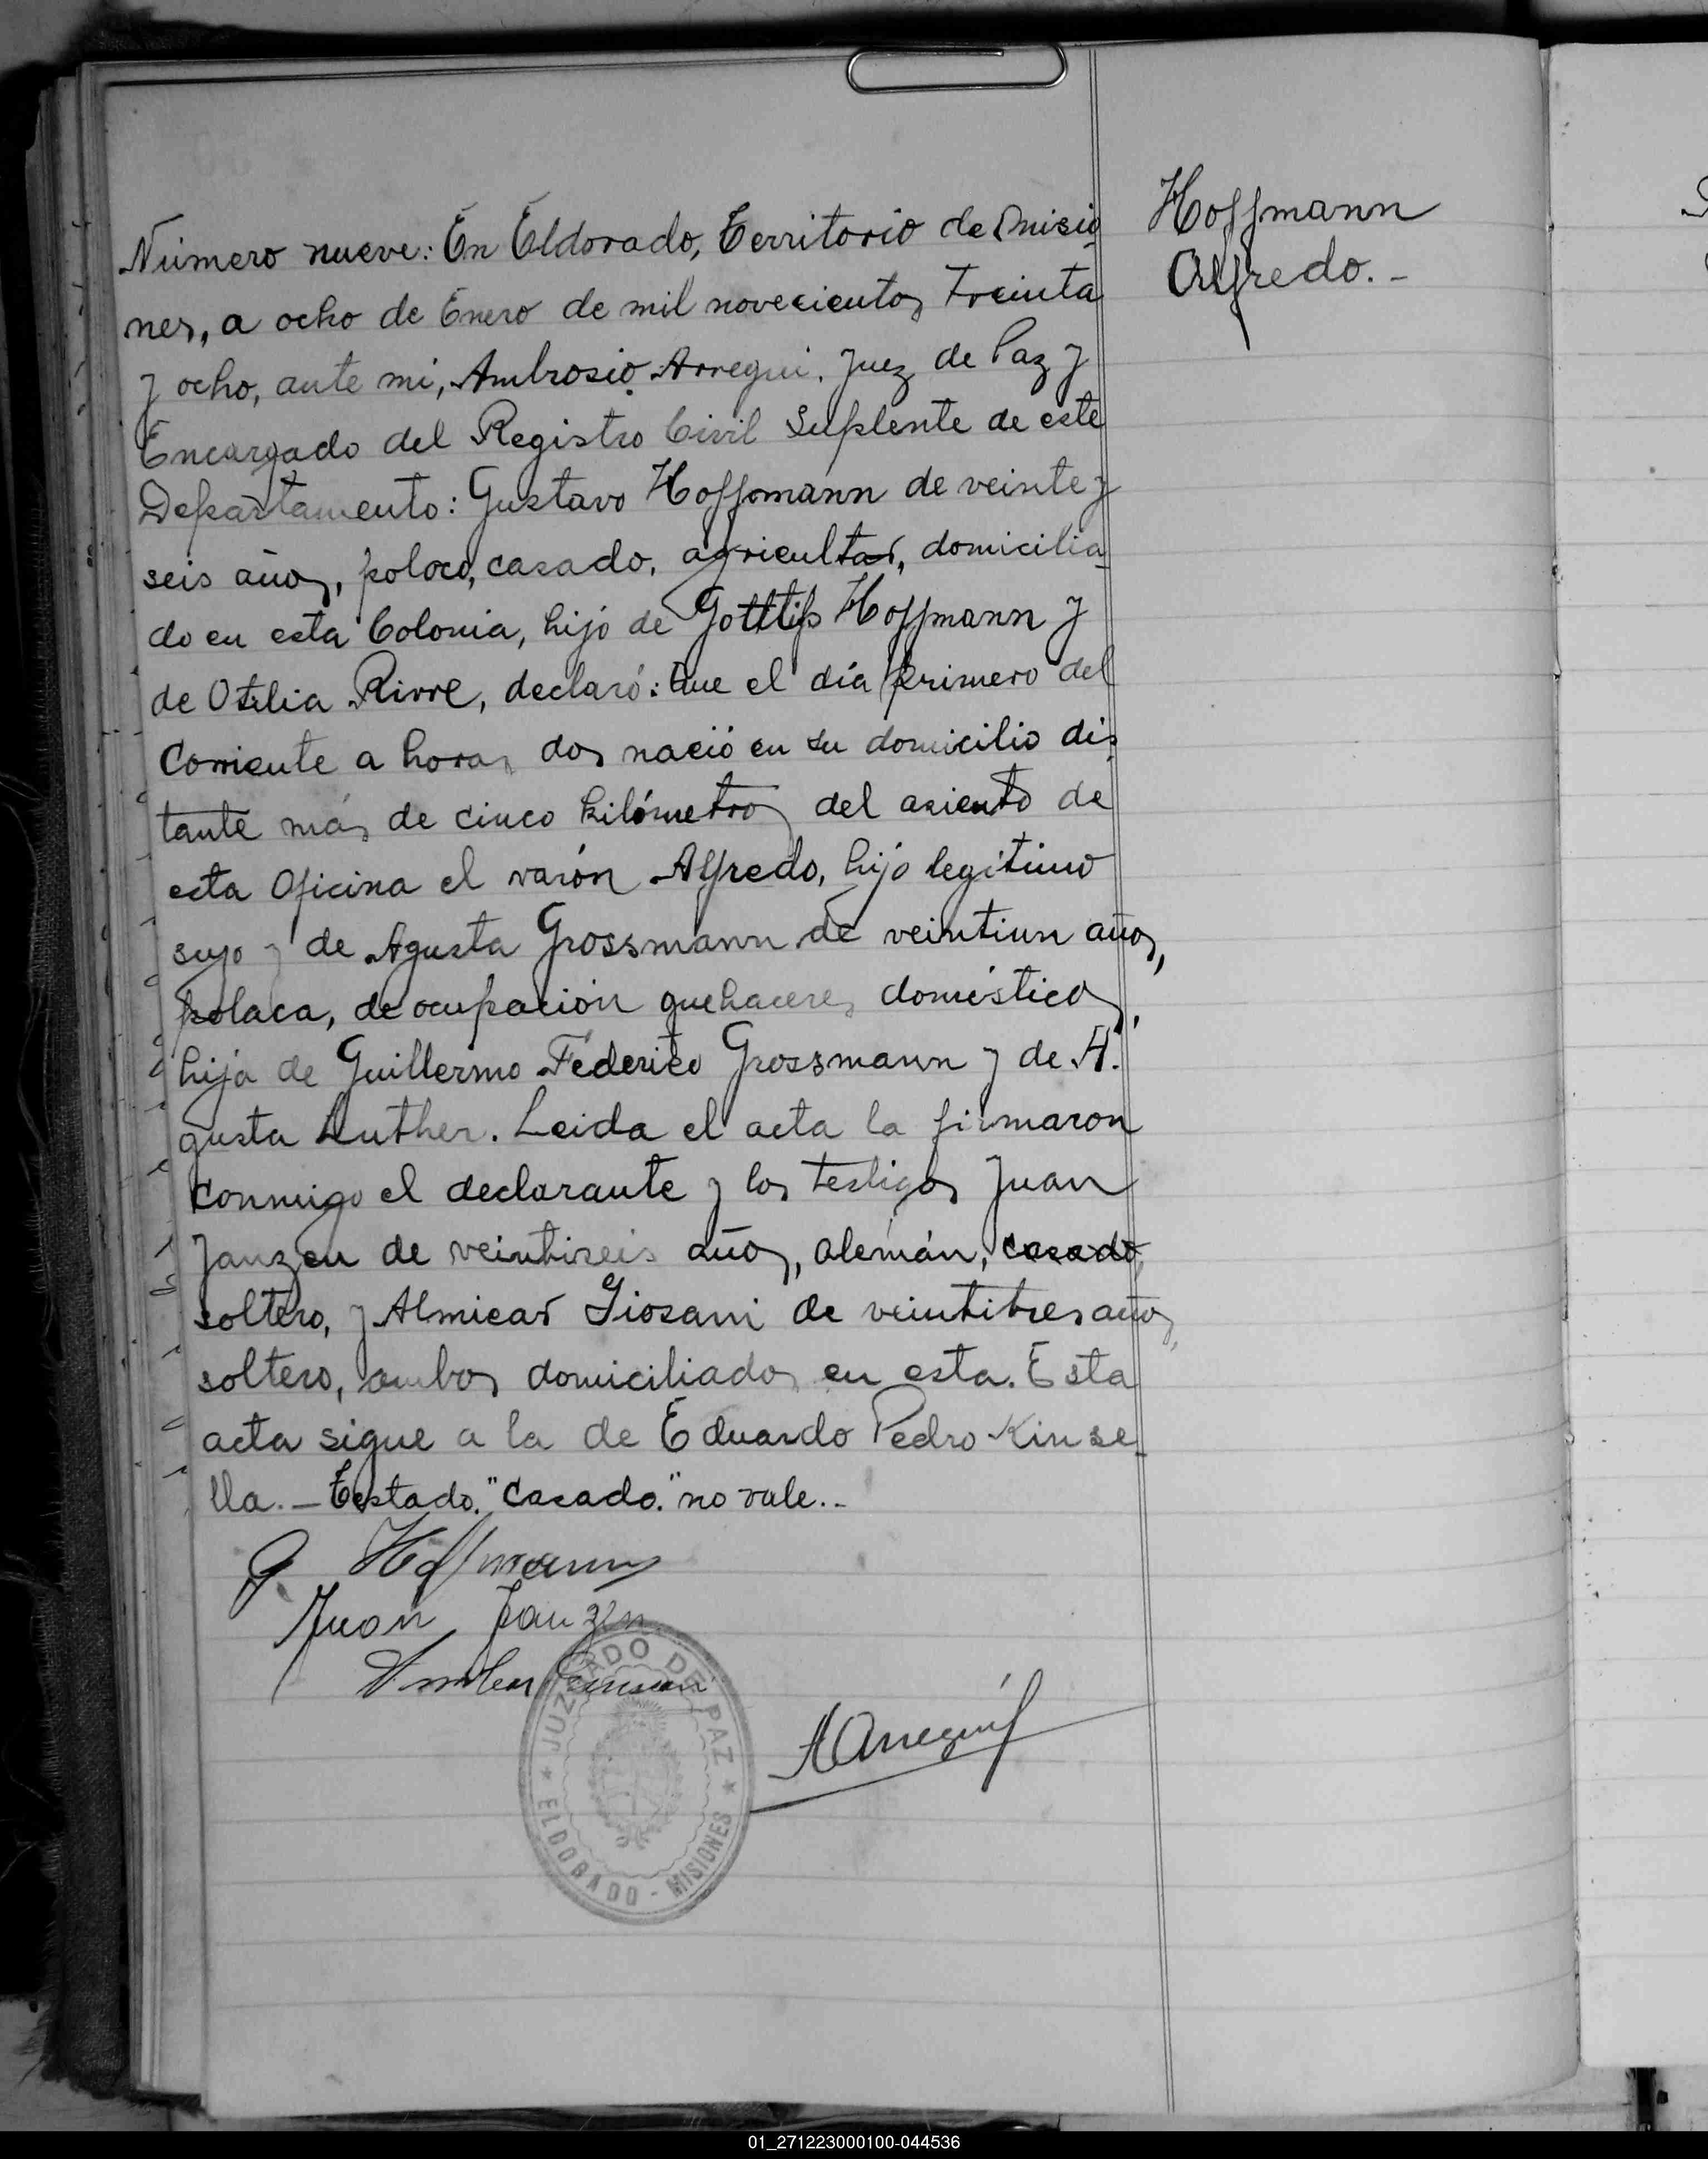 Hoffmann
Alfredo.-
Número nueve: En Eldorado, Territorio de Misio
nes, a ocho de Enero de mil novecientos Treinta
y ocho, ante mi, Ambrosio Arregui. Juez de Paz y
Encargado del Registro Civil Suplente de este
Departamento: Gustavo Hoffmann de veinte y
seis años, poloco, casado, agricultor, domicilia
do en esta Colonia, hijo de Hoffmann y
de Otilia declaró: Que el día primero del
Corriente a horas dos nació en su domicilio dis
tante más de cinco kilómetros del asiento de
esta Oficina el varón Alfredo, hijo legitimo
suyo y de Agusta Grossmann de veintiun años,
polaca, de ocupación quehaceres domésticos,
hija de Guillermo Federico Grossmann y de A.
gusta Luther. Leida el acta la firmaron
conmigo el declarante y los testigos Juan
Janzen de veintiseis años, alemán, casado
soltero, y Almicar Giosani de veintitres años,
soltero, ambos domiciliados en esta. Esta
acta sigue a la de Eduardo Pedro Kinse
lla.- Testado. "Casado." no vale.-
G. Hoffmann
Juan Janzen
A Arregui
JUZGADO DE PAZ
ELDORADO - MISIONES
01_271223000100-044536